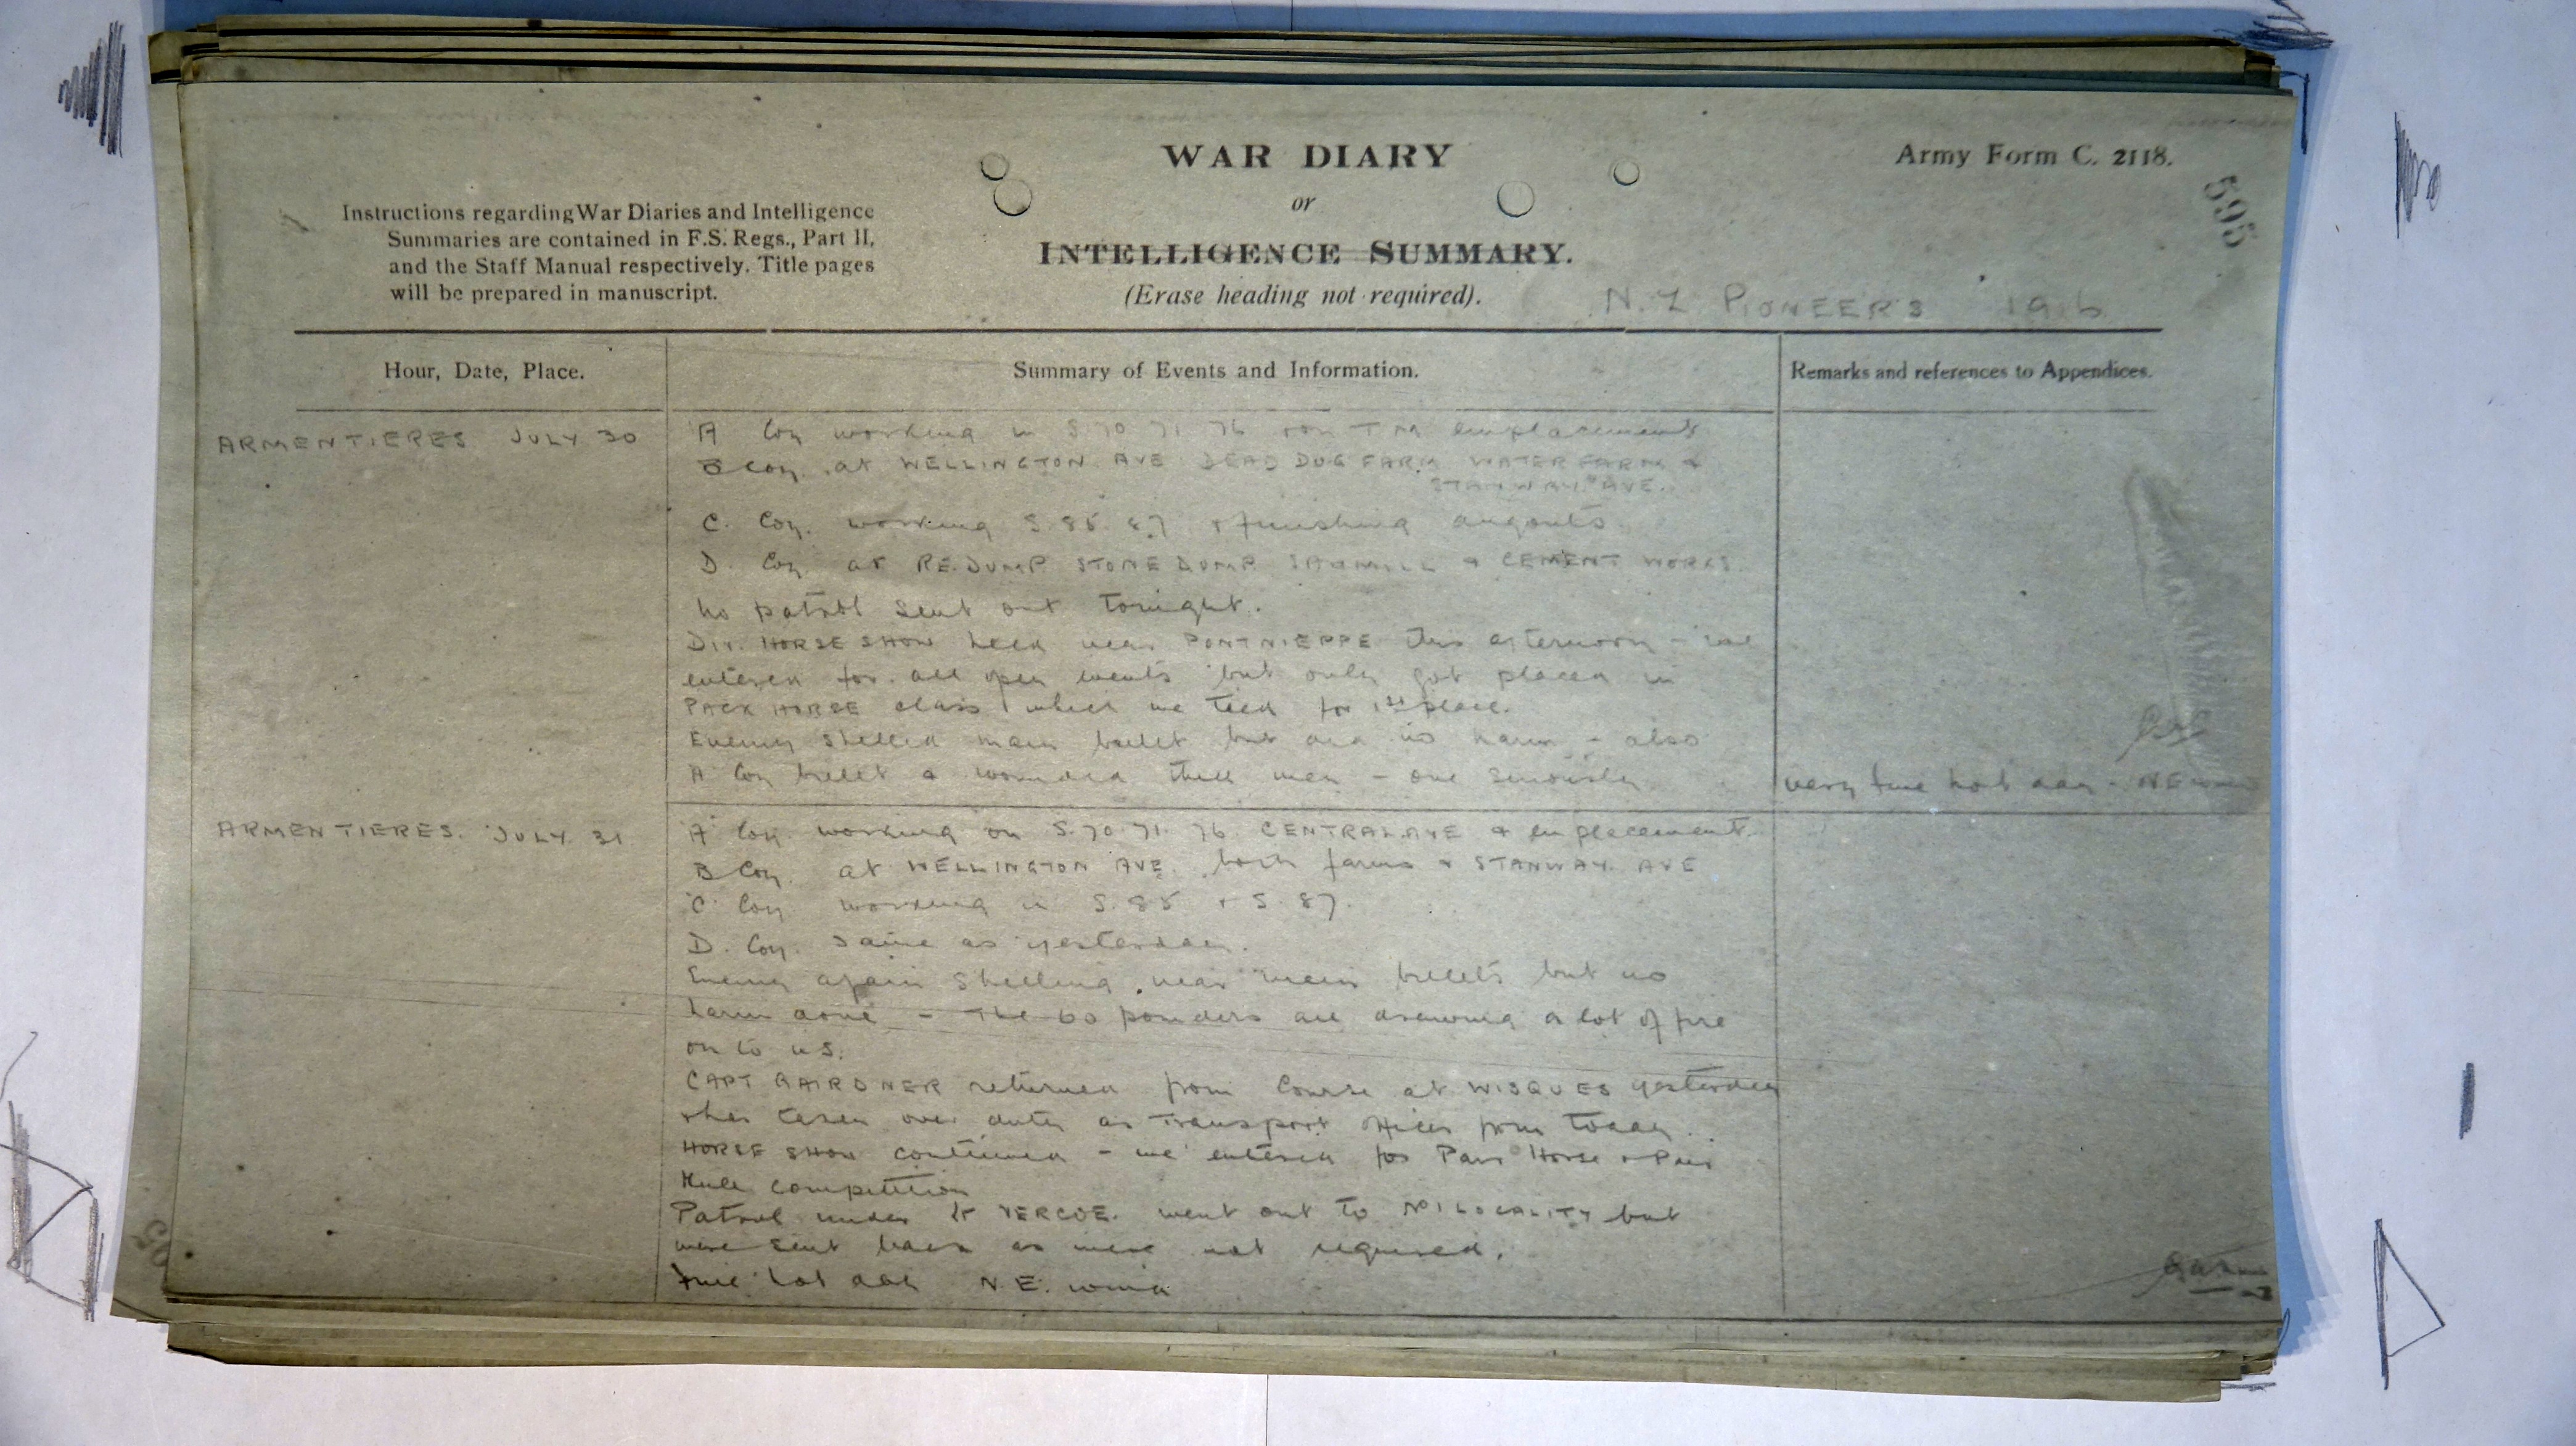 WAR DIARY
or
INTELLIGENCE SUMMARY.
(Erase heading not required).
Army Form C. 2118.
595
Instructions regarding War Diaries and Intelligence
Summaries are contained in F.S. Regs., Part II,
and the Staff Manual respectively. Title pages
will be prepared in manuscript.
N.Z. PIONEERS 1916
Hour, Date, Place.
Summary of Events and Information.
Remarks and references to Appendices.
ARMENTIERES JULY 30
A Coy working in S 70 71 76 + on T M emplacements
B Coy. at WELLINGTON AVE DEAD DOG FARM WATER FARM &
STANWAY AVE.
C. Coy. working S. 85. 87 & finishing dugouts.
D. Coy at RE. DUMP. STONE DUMP. SAWMILL & CEMENT WORKS.
No patrol sent out tonight.
DIV. HORSE SHOW held near PONT NIEPPE this afternoon - we
entered for all open events but only got placed in
PACK HORSE class which we tied for 1st place.
Enemy shelled main billet but did no harm - also
A Coy billet & wounded three men - one seriously
very fine hot day - NE wind
ARMENTIERES. JULY. 31
A Coy. working on S. 70 71. 76. CENTRAL AVE & emplacement.
B Coy. at WELLINGTON AVE. both farms & STANWAY AVE
C Coy working in S. 85 + S. 87.
D. Coy. same as yesterday.
Enemy again shelling near main billets but no
harm done - The 60 pounders are drawing a lot of fire
on to us.
CAPT GAIRDNER returned from Course at WISQUES yesterday
& has taken over duty as Transport Officer from today.
HORSE SHOW continued - we entered for Pair Horse & Pair
Mule competition
Patrol under Lt VERCOE. went out to No 1 LOCALITY but
were sent back as were not required.
Fine hot day N.E. wind